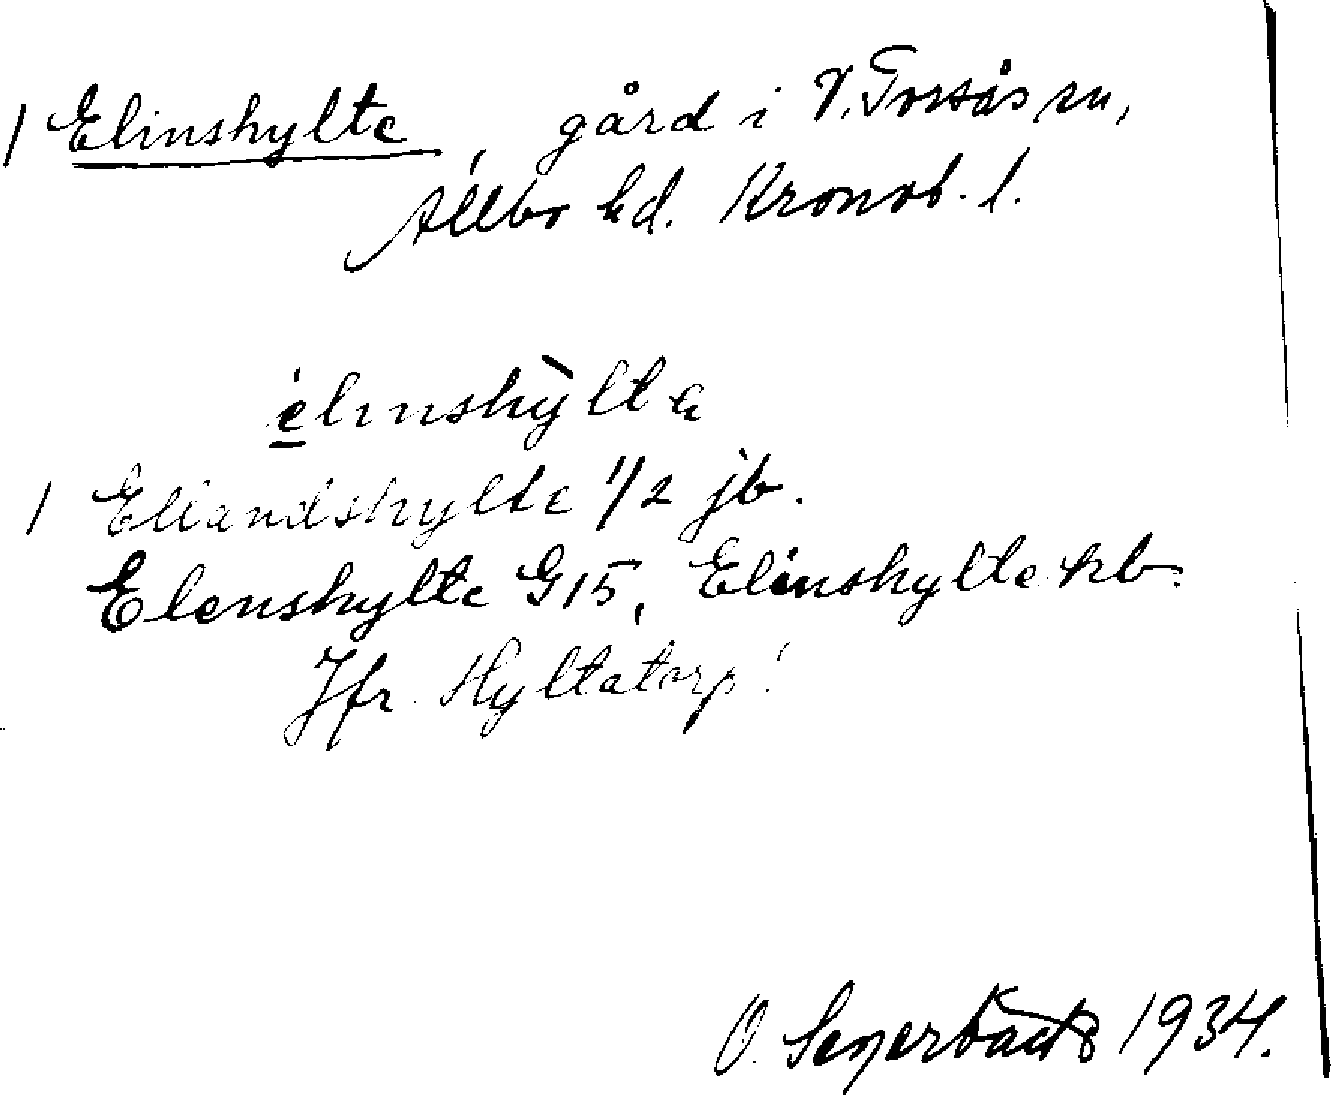 1 Elinshylte, gård i V. Torsås sn,
Allbo hd. Kronob. l.
elinshỳlta
1 Eliandshylte 1/2 jb.
Elenshylte G15, Elinshylte kb.
Jfr. Hyltatorp!
O. 1934.